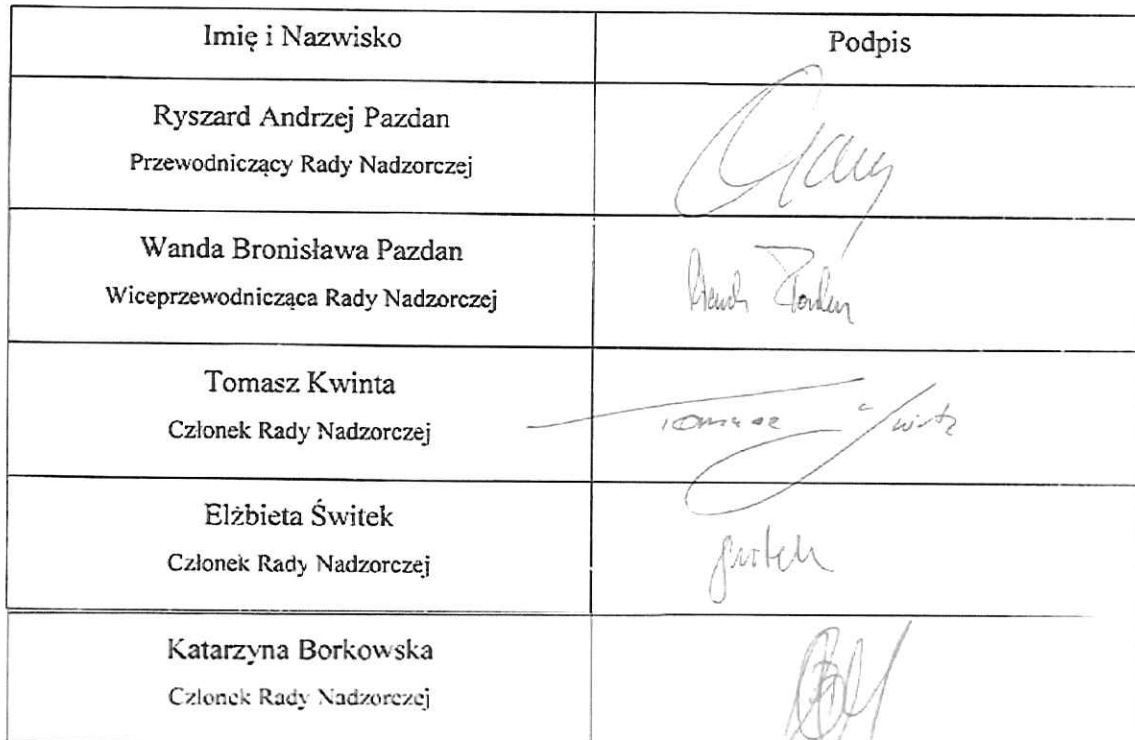 Imię i Nazwisko
Podpis
Ryszard Andrzej Pazdan
Przewodniczący Rady Nadzorczej
Wanda Bronisława Pazdan
Wiceprzewodnicząca Rady Nadzorczej
Tomasz Kwinta
Członek Rady Nadzorczej
Tomasz Kwinta
Elżbieta Świtek
Członek Rady Nadzorczej
Katarzyna Borkowska
Członek Rady Nadzorczej